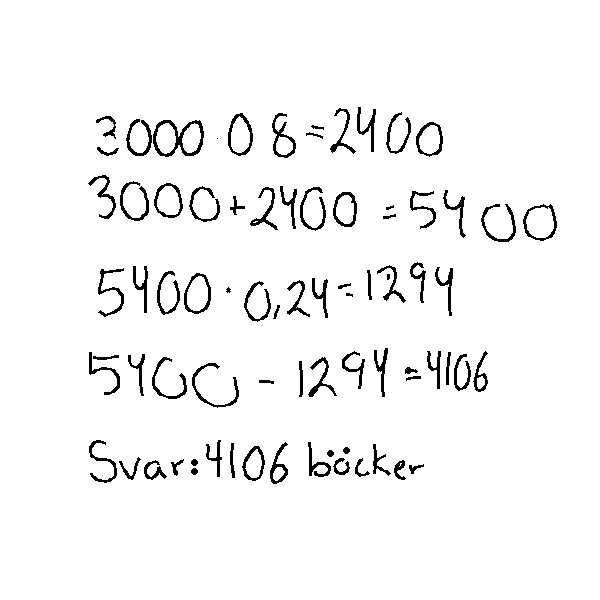 3000 · 0 8 = 2400
3000 + 2400 = 5400
5400 · 0,24 = 1294
5400 - 1294 = 4106
Svar: 4106 böcker